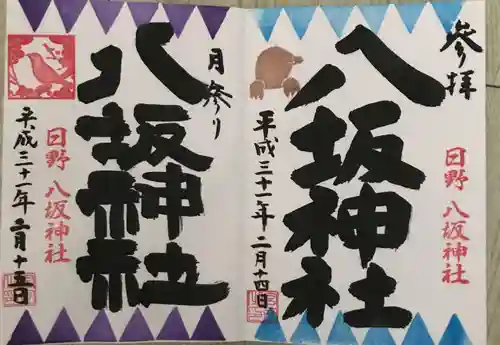 参拝
日野 八坂神社
八坂神社
平成三十一年二月十四日
月参り
八坂神社
日野 八坂神社
平成三十一年二月十五日